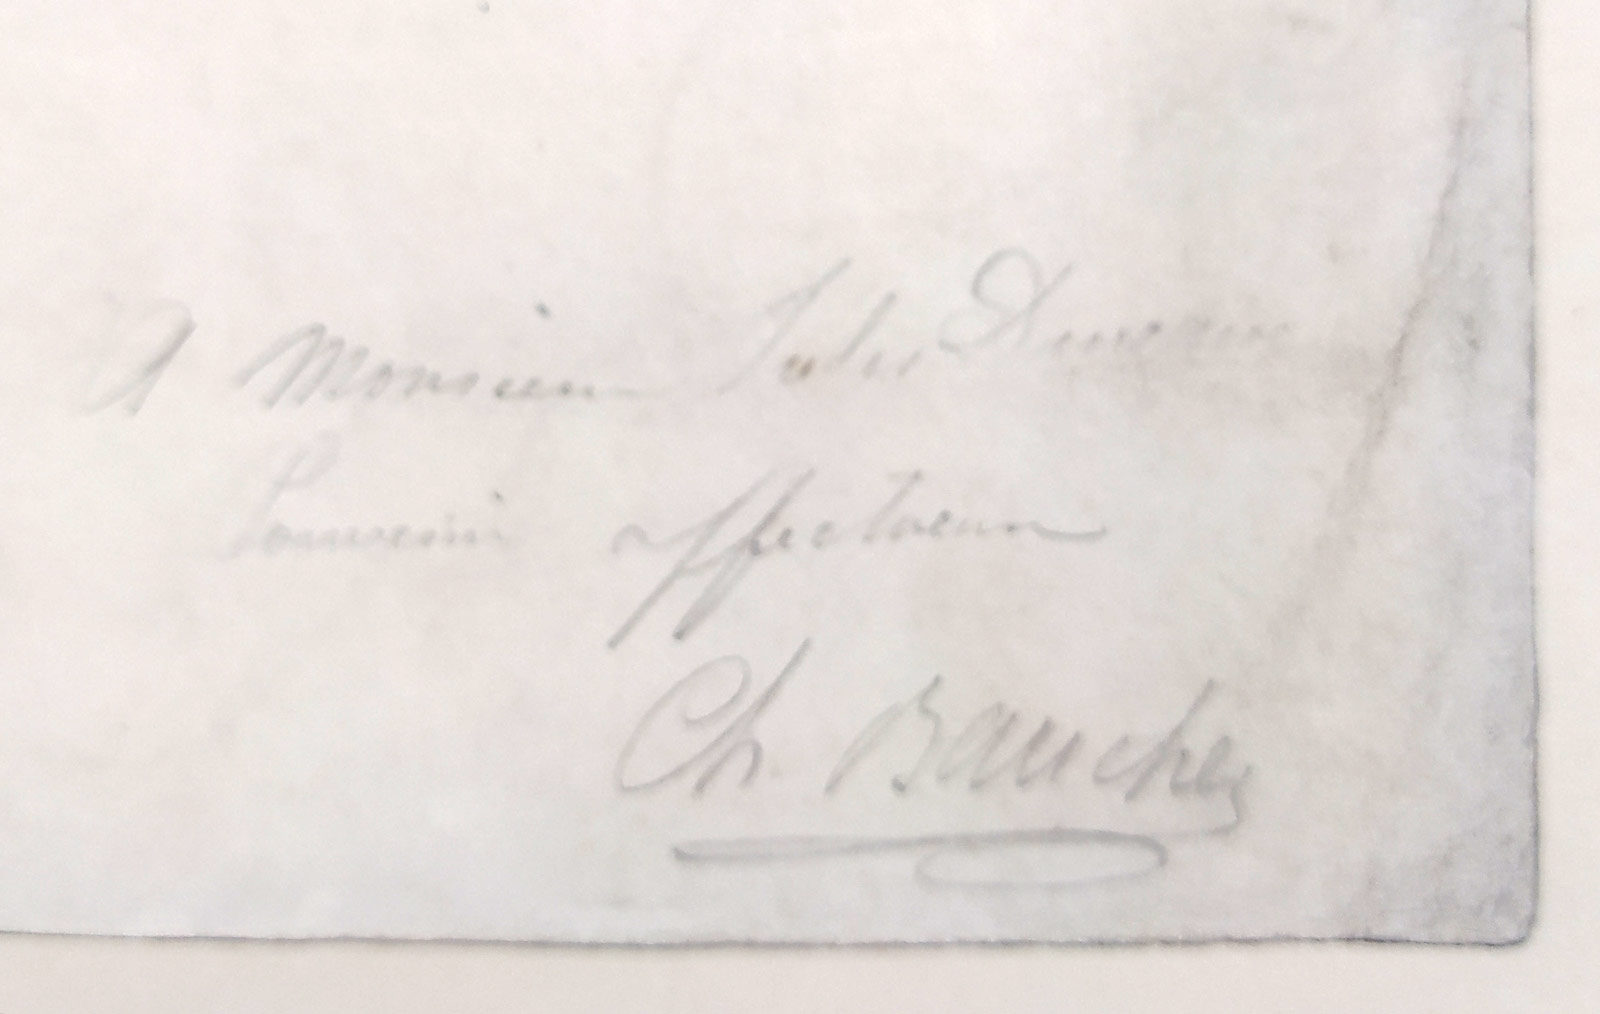 A Monsieur Jules
Souvenir affectueux
Ch. Bauche